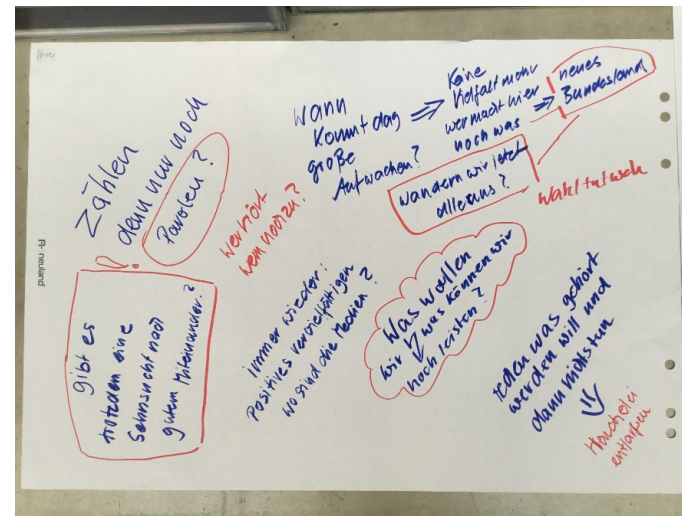 Zählen
denn nur noch
Parolen?
Wann
kommt das
große
Aufwachen?
Keine
Vielfalt mehr
wer macht hier
noch was
neues
Bundesland
wandern wir jetzt
alle aus?
Wahl tut weh
wer hört
wem noch zu?
gibt es
trotzdem eine
Sehnsucht nach
gutem Miteinander?
immer wieder:
Positives vervielfältigen
wo sind die Medien?
Was wollen
wir
was können wir
noch leisten?
reden was gehört
werden will und
dann nichts tun
Heuchelei
entlarven
neuland